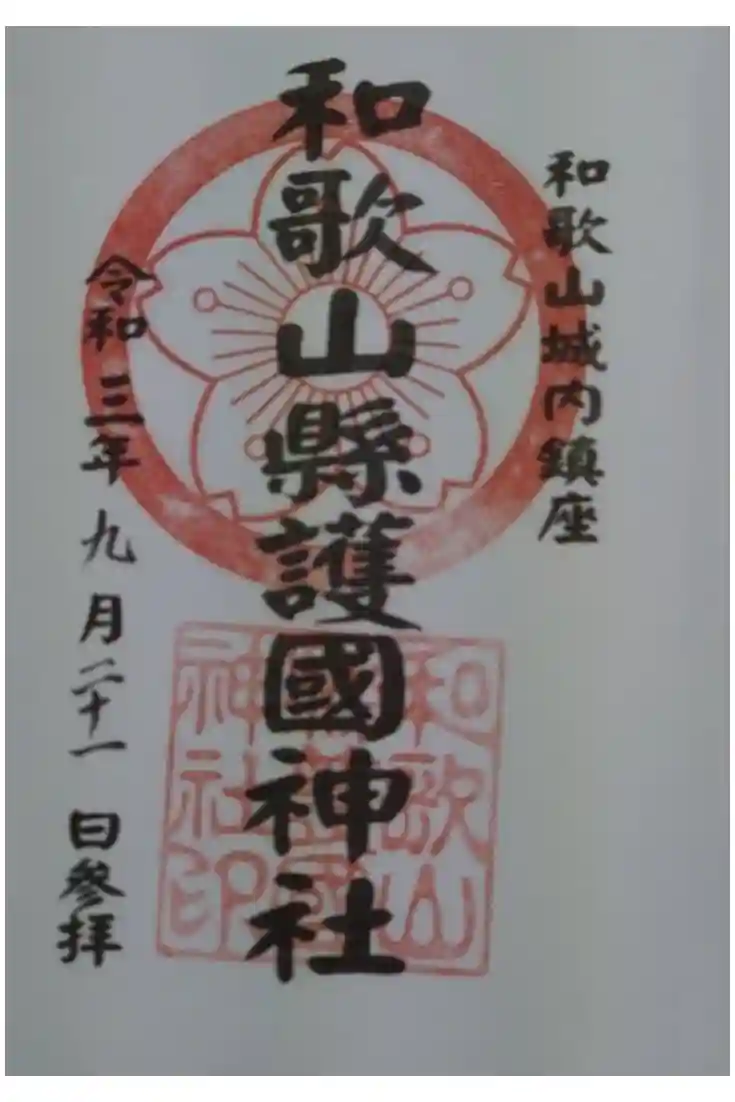 和歌山城内鎮座
和歌山縣護國神社
令和三年九月二十一日参拝
和歌山
神社印